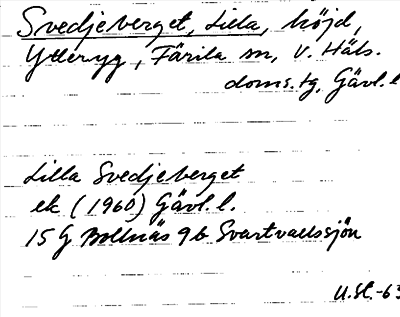 Svedjeberget, Lilla, höjd,
Ytteryg, Färila sn, V. Häls.
doms.tg, Gävl. l
Lilla Svedjeberget
ek (1960) Gävl. l.
15 G Bollnäs 9b Svartvallssjön
U.St.-63